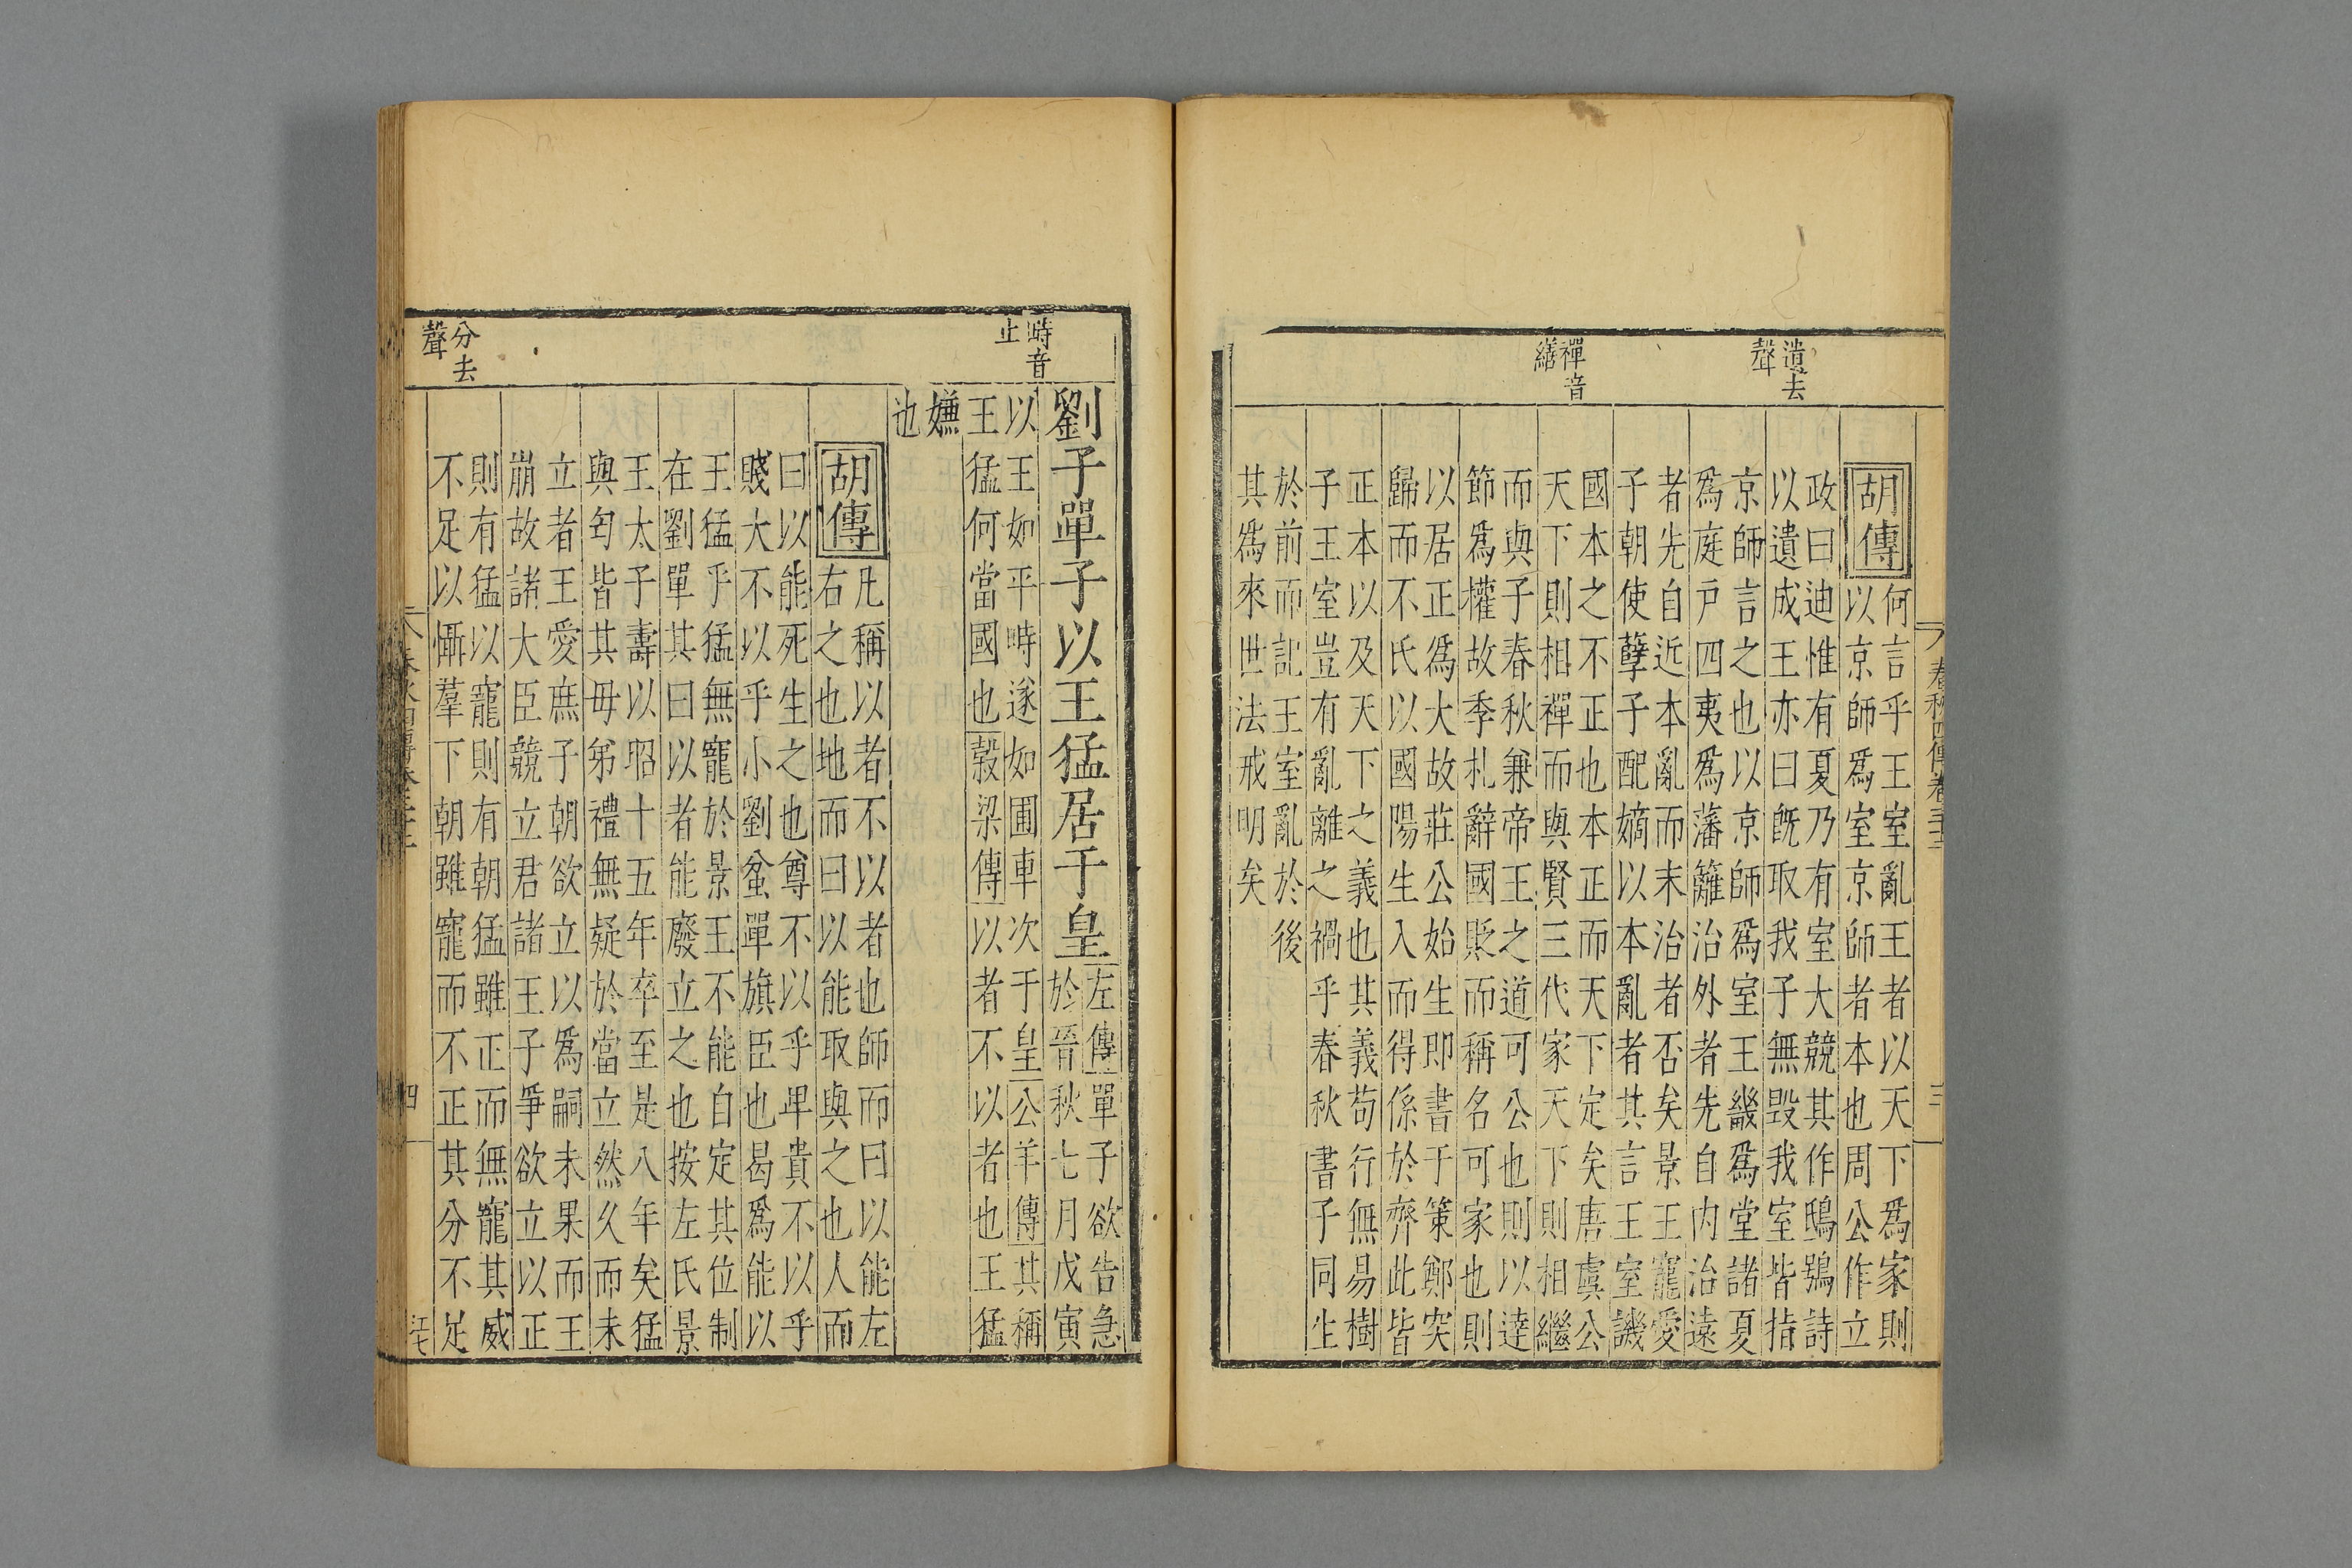 春秋四傳卷三十三
三
遺去
聲
禪音
繕
胡傳
何言乎王室亂王者以天下爲家則
以京師爲室京師者本也周公作立
政曰迪惟有夏乃有室大競其作鴟鴞詩
以遺成王亦曰旣取我子無毀我室皆指
京師言之也以京師爲室王畿爲堂諸夏
爲庭戶四夷爲藩籬治外者先自内治遠
者先自近本亂而末治者否矣景王寵愛
子朝使孽子配嫡以本亂者其言王室譏
國本之不正也本正而天下定矣唐虞公
天下則相禪而與賢三代家天下則相繼
而與子春秋兼帝王之道可公也則以達
節爲權故季札辭國貶而稱名可家也則
以居正爲大故莊公始生即書于策鄭突
歸而不氏以國陽生入而得係於齊此皆
正本以及天下之義也其義苟行無易樹
子王室豈有亂離之禍乎春秋書子同生
於前而記王室亂於後
其爲來世法戒明矣
時音
止
分去
聲
劉子單子以王猛居于皇
左傳單子欲告急
於晉秋七月戊寅
以王如平時遂如圃車次于皇公羊傳其稱
王猛何當國也穀梁傳以者不以者也王猛
嫌
也
胡傳
凡稱以者不以者也師而曰以能左
右之也地而曰以能取與之也人而
曰以能死生之也尊不以乎𤰞貴不以乎
賤大不以乎小劉蚠單旗臣也曷爲能以
王猛乎猛無寵於景王不能自定其位制
在劉單其曰以者能廢立之也按左氏景
王太子壽以昭十五年卒至是八年矣猛
與匄皆其毋弟禮無疑於當立然久而未
立者王愛庶子朝欲立以爲嗣未果而王
崩故諸大臣競立君諸王子爭欲立以正
則有猛以寵則有朝猛雖正而無寵其威
不足以懾羣下朝雖寵而不正其分不足
四